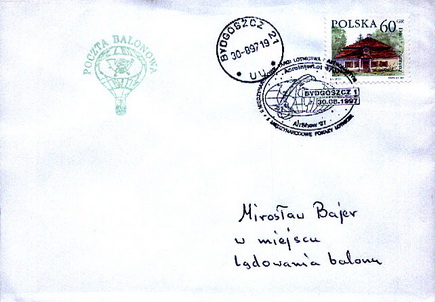 POCZTA BALONOWA
BYDGOSZCZ 21
30-8-97 19
UU
POLSKA 60 GR
BYDGOSZCZ 1
30.08.1997
MIĘDZYNARODOWE POKAZY LOTNICZE
Mirosław Bajer
w miejscu
lądowania balonu